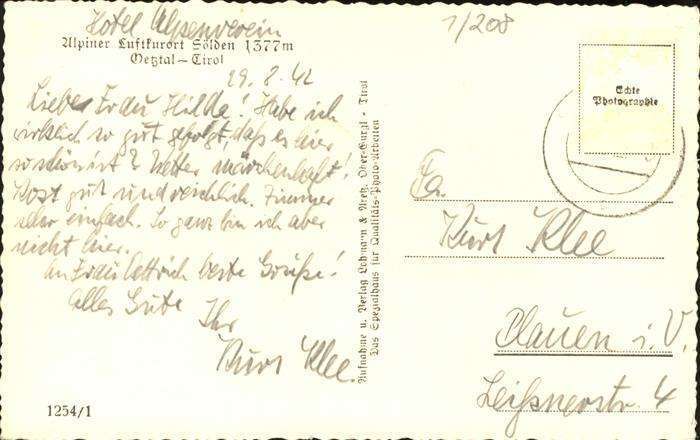 Hotel Alpenverein
1/208
Alpiner Luftkurort Sölden 1377m
Oetztal – Tirol
29. 8. 42
Liebe Frau Hilde! Habe ich
wirklich so gut gefolgt, daß es hier
so schön ist? Wetter märchenhaft!
Kost gut und reichlich. Zimmer
sehr einfach. So ganz bin ich aber
nicht hier.
An Frau beste Grüße!
Alles Gute
Ihr
Kurt Klee.
1254/1
Aufnahme u. Verlag Lohmann & Aretz, Ober-Gurgl - Tirol
Das Spezialhaus für Qualitäts-Photo-Arbeiten
Echte
Photographie
Fa.
Kurt Klee
Plauen i. V.
Leißnerstr. 4